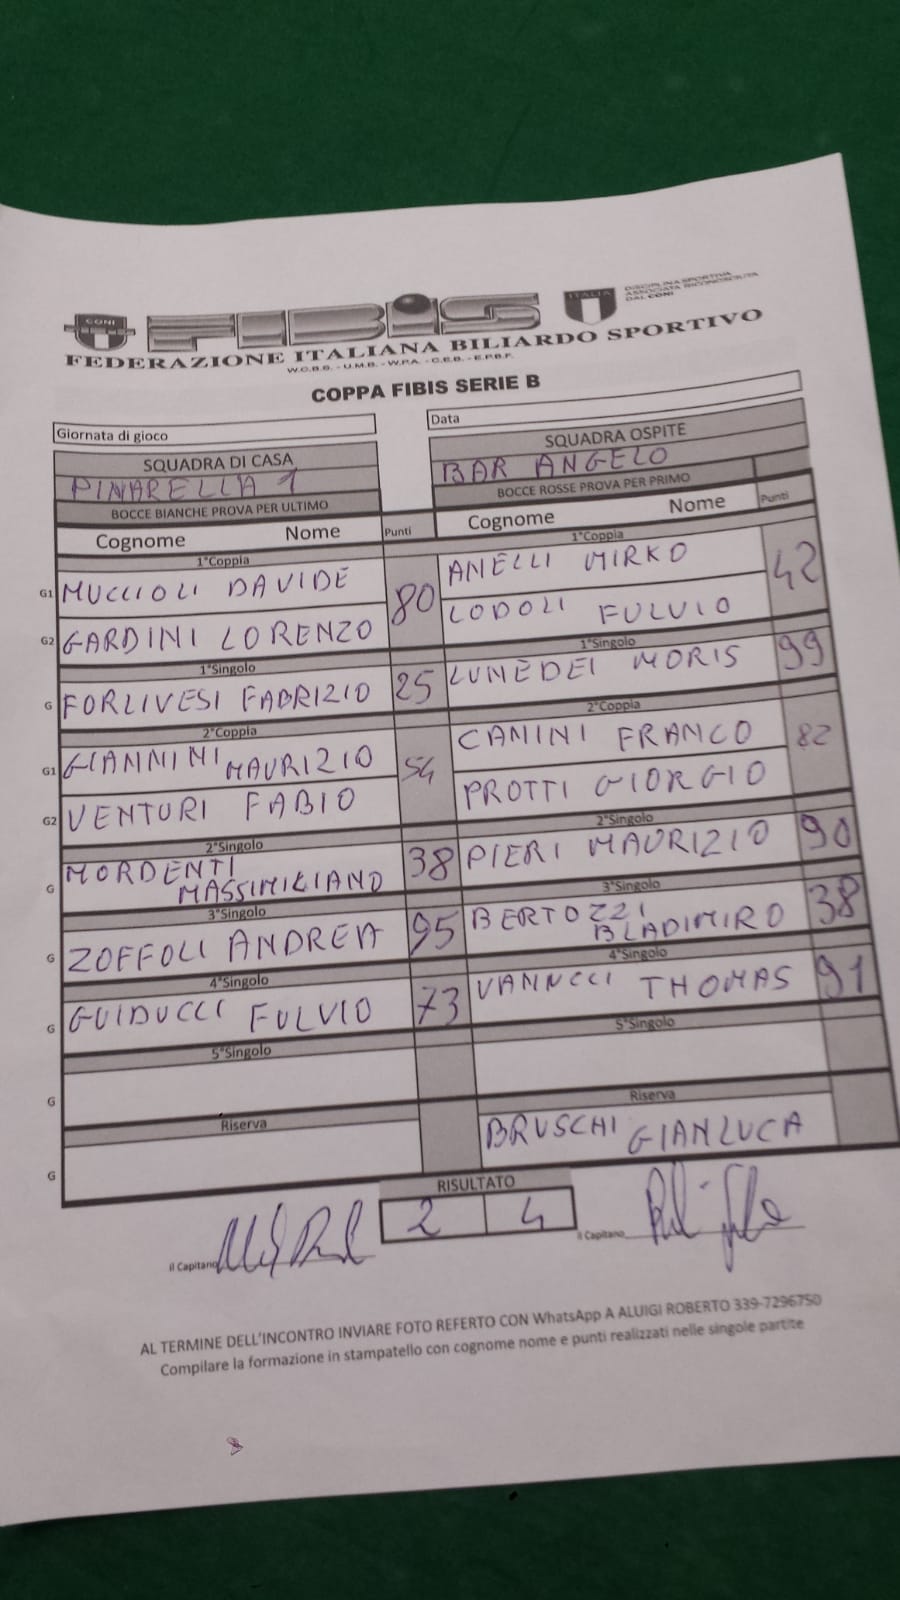 CONI
FIBIS
ITALIA
DISCIPLINA SPORTIVA
ASSOCIATA RICONOSCIUTA
DAL CONI
FEDERAZIONE ITALIANA BILIARDO SPORTIVO
W.C.B.S. - U.M.B. - W.P.A. - C.E.B. - E.P.B.F.
COPPA FIBIS SERIE B
Giornata di gioco
Data
SQUADRA DI CASA SQUADRA OSPITE
PINARELLA 1 BAR ANGELO
BOCCE BIANCHE PROVA PER ULTIMO BOCCE ROSSE PROVA PER PRIMO
Cognome Nome Punti Cognome Nome Punti
1°Coppia 1°Coppia
G1 MUCCIOLI DAVIDE 80 ANELLI MIRKO 42
G2 GARDINI LORENZO LODOLI FULVIO
1°Singolo 1°Singolo
G FORLIVESI FABRIZIO 25 LUNEDEI MORIS 99
2°Coppia 2°Coppia
G1 GIANNINI MAURIZIO 54 CAMINI FRANCO 82
G2 VENTURI FABIO PROTTI GIORGIO
2°Singolo 2°Singolo
G MORDENTI MASSIMILIANO 38 PIERI MAURIZIO 90
3°Singolo 3°Singolo
G ZOFFOLI ANDREA 95 BERTOZZI BLADIMIRO 38
4°Singolo 4°Singolo
G GUIDUCCI FULVIO 73 VANNUCCI THOMAS 91
5°Singolo 5°Singolo
G
Riserva Riserva
G BRUSCHI GIANLUCA
RISULTATO
2 4
il Capitano il Capitano
AL TERMINE DELL'INCONTRO INVIARE FOTO REFERTO CON WhatsApp A ALUIGI ROBERTO 339-7296750
Compilare la formazione in stampatello con cognome nome e punti realizzati nelle singole partite